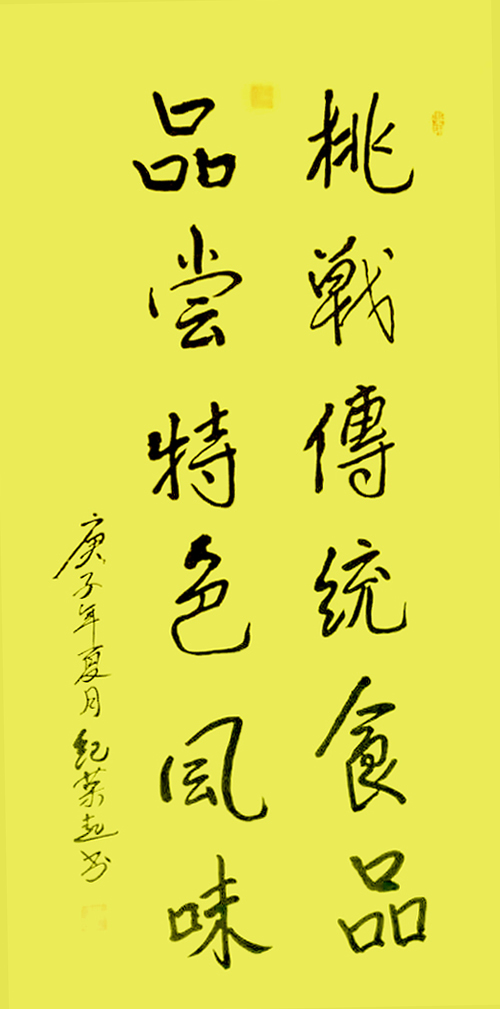 挑戰傳統食品
品尝特色風味
庚子年夏月纪荣起书